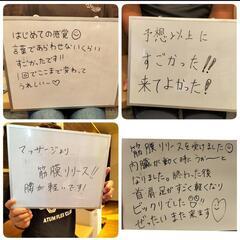 はじめての感覚☺
言葉であらわせないくらい
すごかったです!!
1回でここまで変わって
うれしい〜♡
予想以上に
すごかった!!
来てよかった!
マッサージより
筋膜リリース!!
腰が軽いです!
ATUM FLEX CLUB
筋膜リリースを受けました☺
内臓が動く様に
なりました。終わった後
首肩足がすごく軽くなり
ビックリでした
ぜったいまた来ます